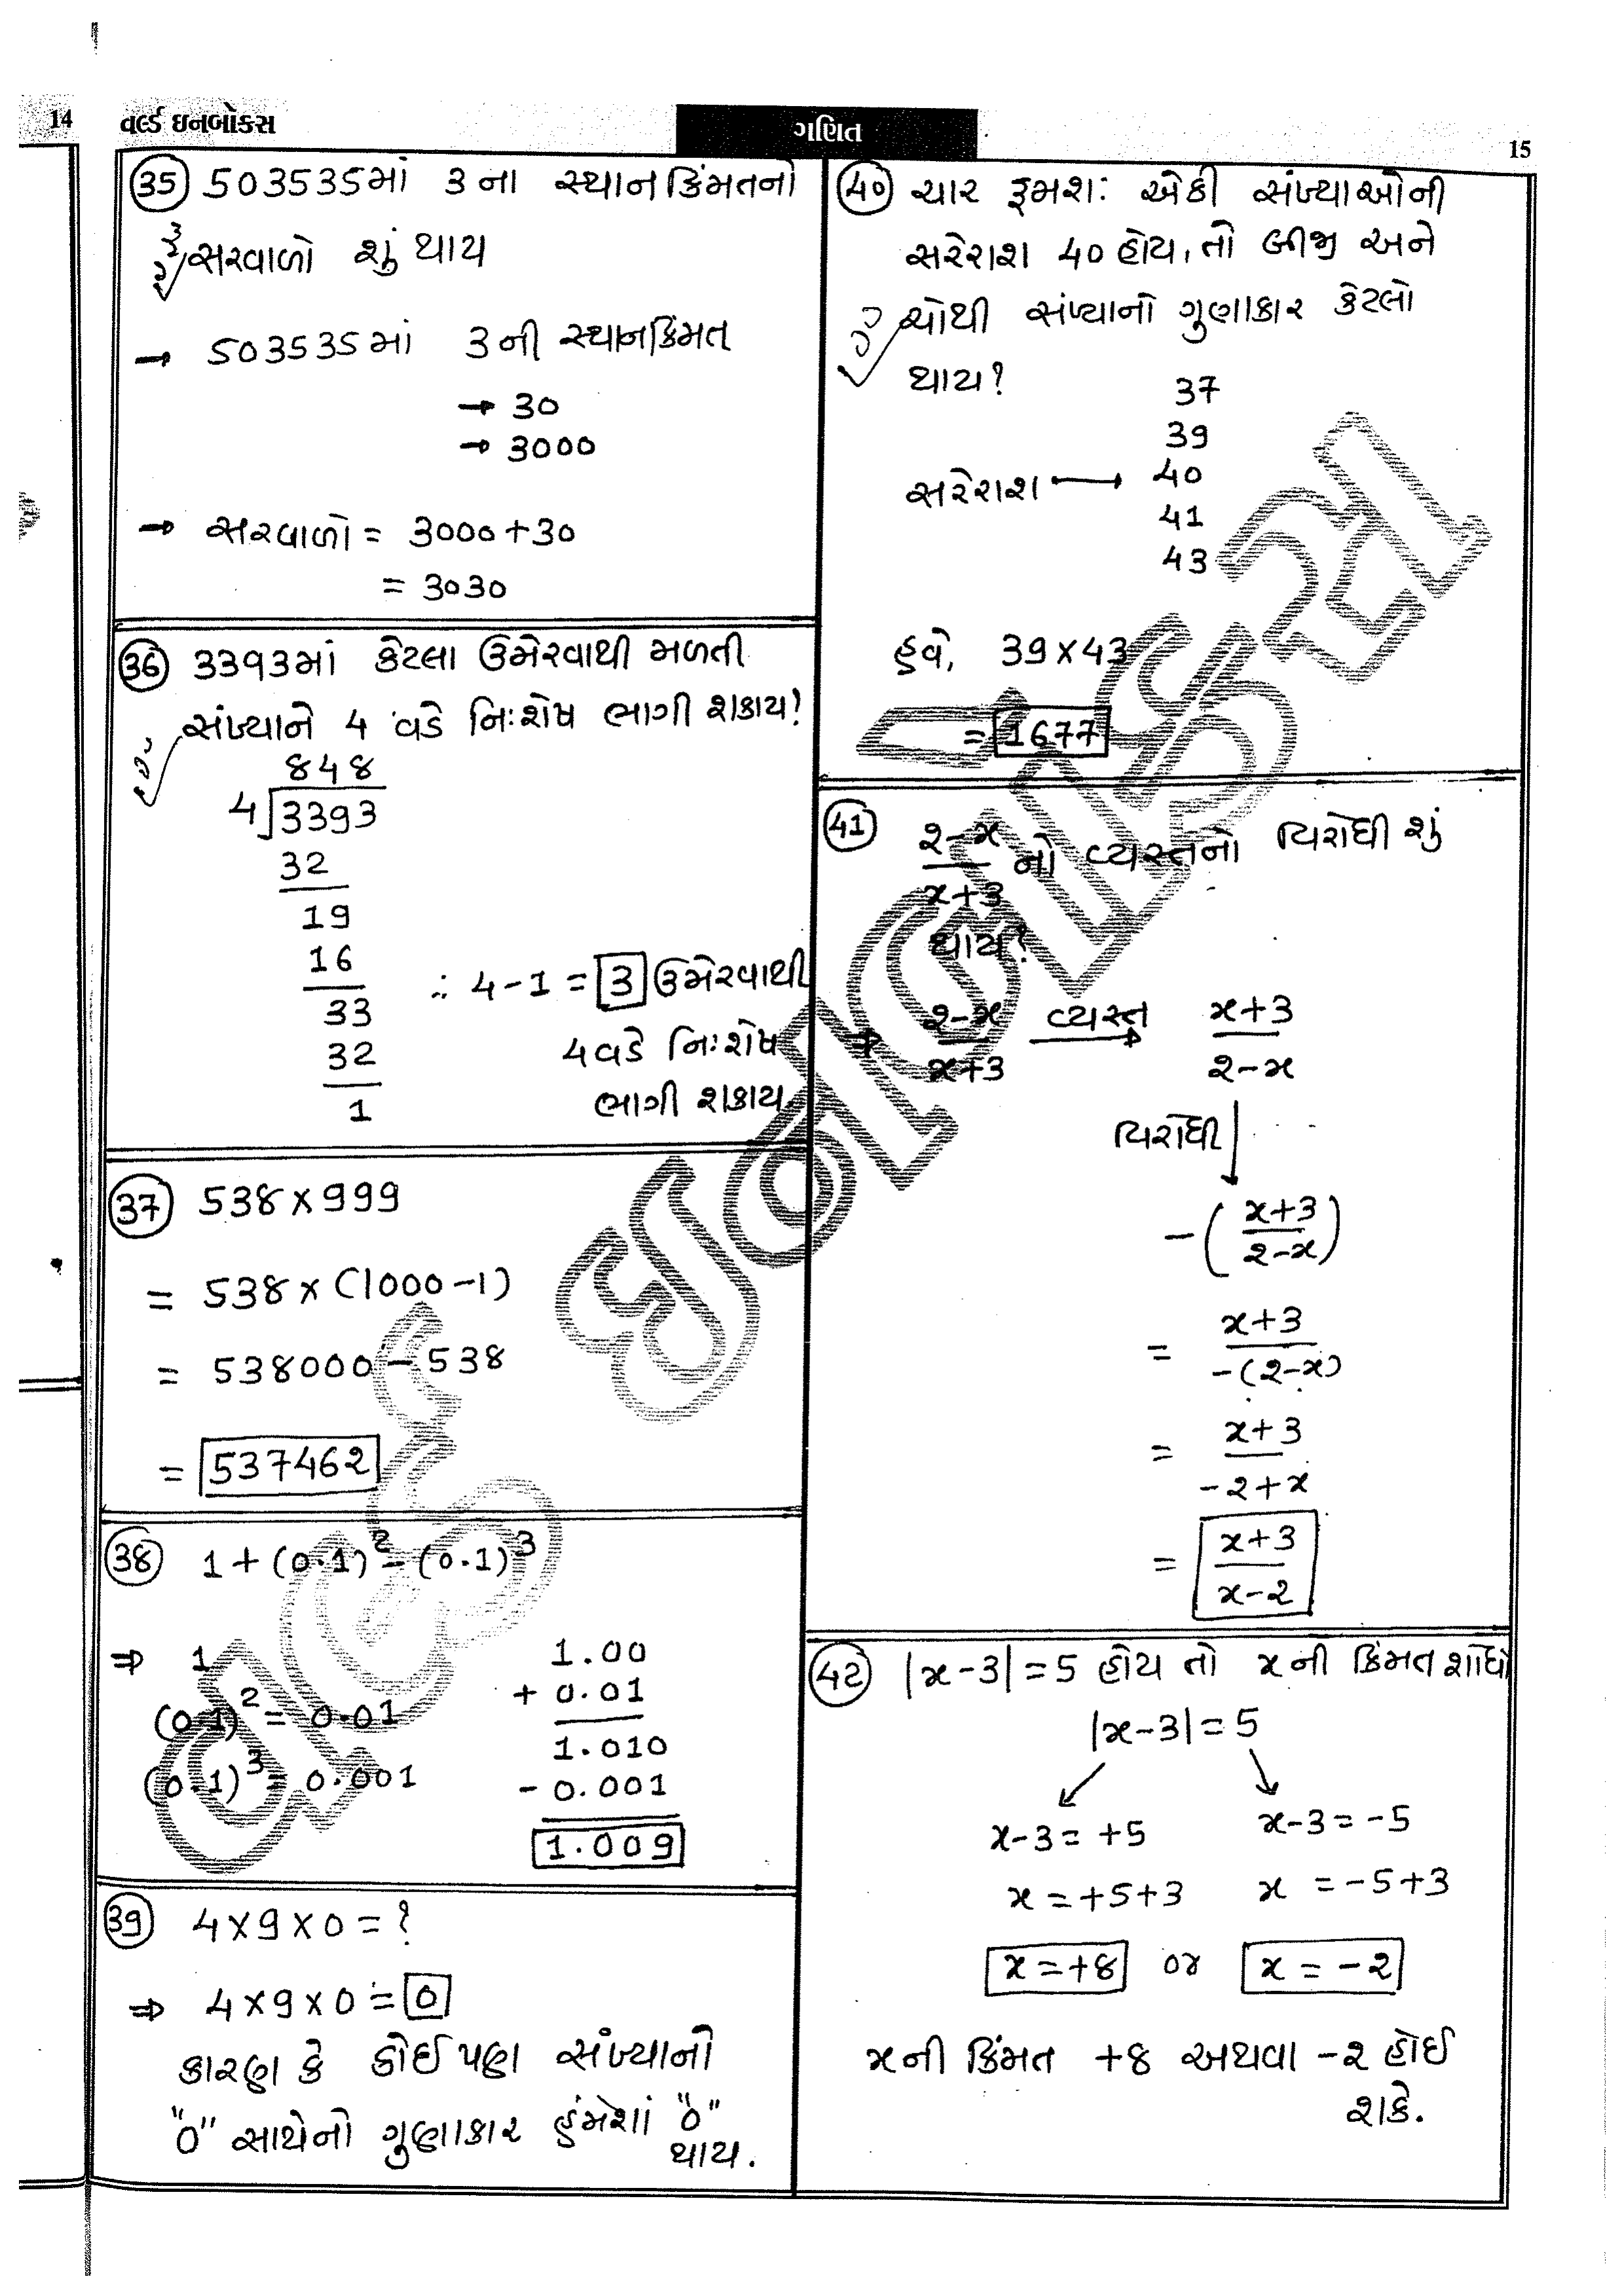 14 વર્લ્ડ ઇનબોક્સ ગણિત 15
(35) 503535માં 3 ના સ્થાનકિંમતનો
સરવાળો શું થાય
→ 503535માં 3 ની સ્થાનકિંમત
→ 30
→ 3000
→ સરવાળો = 3000+30
= 3030
(36) 3393માં કેટલા ઉમેરવાથી મળતી
સંખ્યાને 4 વડે નિઃશેષ ભાગી શકાય?
848
4 3393
32
19
16
33
32
1
∴ 4-1 = 3 ઉમેરવાથી
4 વડે નિઃશેષ
ભાગી શકાય.
(37) 538 x 999
= 538 x (1000-1)
= 538000 - 538
= 537462
(38) 1 + (0.1)² - (0.1)³
⇒ 1
(0.1)² = 0.01
(0.1)³ = 0.001
1.00
+ 0.01
1.010
- 0.001
1.009
(39) 4 x 9 x 0 = ?
⇒ 4 x 9 x 0 = 0
કારણ કે કોઈ પણ સંખ્યાનો
"0" સાથેનો ગુણાકાર હંમેશાં "0"
થાય.
(40) ચાર ક્રમશઃ એકી સંખ્યાઓની
સરેરાશ 40 હોય, તો બીજી અને
ચોથી સંખ્યાનો ગુણાકાર કેટલો
થાય?
37
39
સરેરાશ → 40
41
43
હવે, 39 x 43
= 1677
(41) 2-x
x+3 નો વ્યસ્તનો વિરોધી શું
થાય?
⇒ 2-x વ્યસ્ત x+3
x+3 → 2-x
વિરોધી ↓
-(x+3
2-x)
= x+3
-(2-x)
= x+3
-2+x
= x+3
x-2
(42) |x-3| = 5 હોય તો x ની કિંમત શોધો
|x-3| = 5
x-3 = +5 x-3 = -5
x = +5+3 x = -5+3
x = +8 or x = -2
x ની કિંમત +8 અથવા -2 હોઈ
શકે.
વર્લ્ડ ઇનબોક્સ